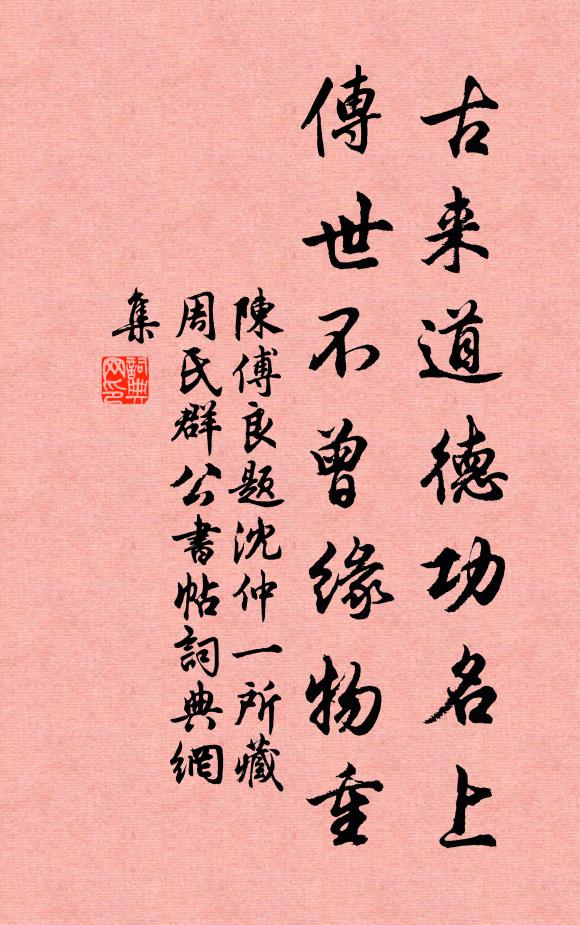 古来道德功名上
傳世不曾緣物重
陳傅良題沈仲一所藏
周氏群公書帖詞典網
集
詞典
网印